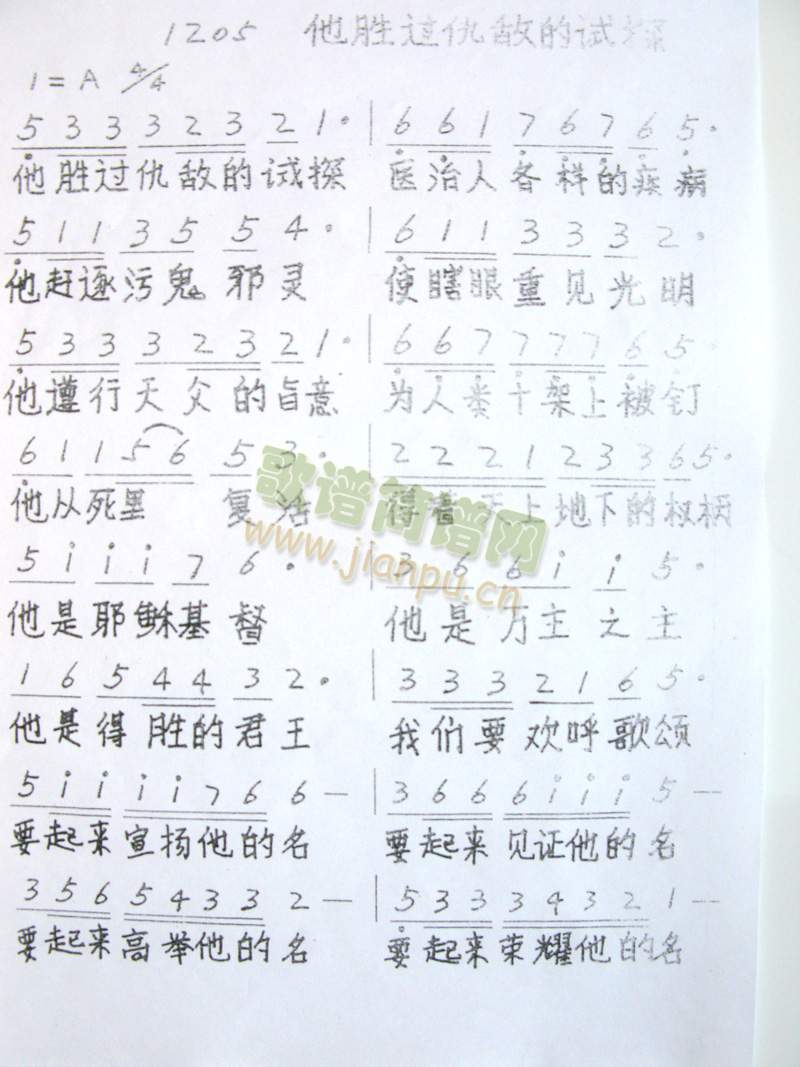 1205 他胜过仇敌的试探
1=A 4/4
5 3 3 3 2 3 2 1· | 6 6 1 7 6 7 6 5·
他胜过仇敌的试探 医治人各样的疾病
5 1 1 3 5 5 4· | 6 1 1 3 3 3 2·
他赶逐污鬼邪灵 使瞎眼重见光明
5 3 3 3 2 3 2 1· | 6 6 7 7 7 7 6 5·
他遵行天父的旨意 为人类十架上被钉
6 1 1 5 6 5 3· | 2 2 2 1 2 3 3 6 5·
他从死里 复活 得着天上地下的权柄
5 i i i 7 6· | 3 6 6 i i 5·
他是耶稣基督 他是万主之主
1 6 5 4 4 3 2· | 3 3 3 2 1 6 5·
他是得胜的君王 我们要欢呼歌颂
5 i i i i 7 6 6 — | 3 6 6 6 i i i 5 —
要起来宣扬他的名 要起来见证他的名
3 5 6 5 4 3 3 2 — | 5 3 3 3 4 3 2 1 —
要起来高举他的名 要起来荣耀他的名
歌谱简谱网
www.jianpu.cn